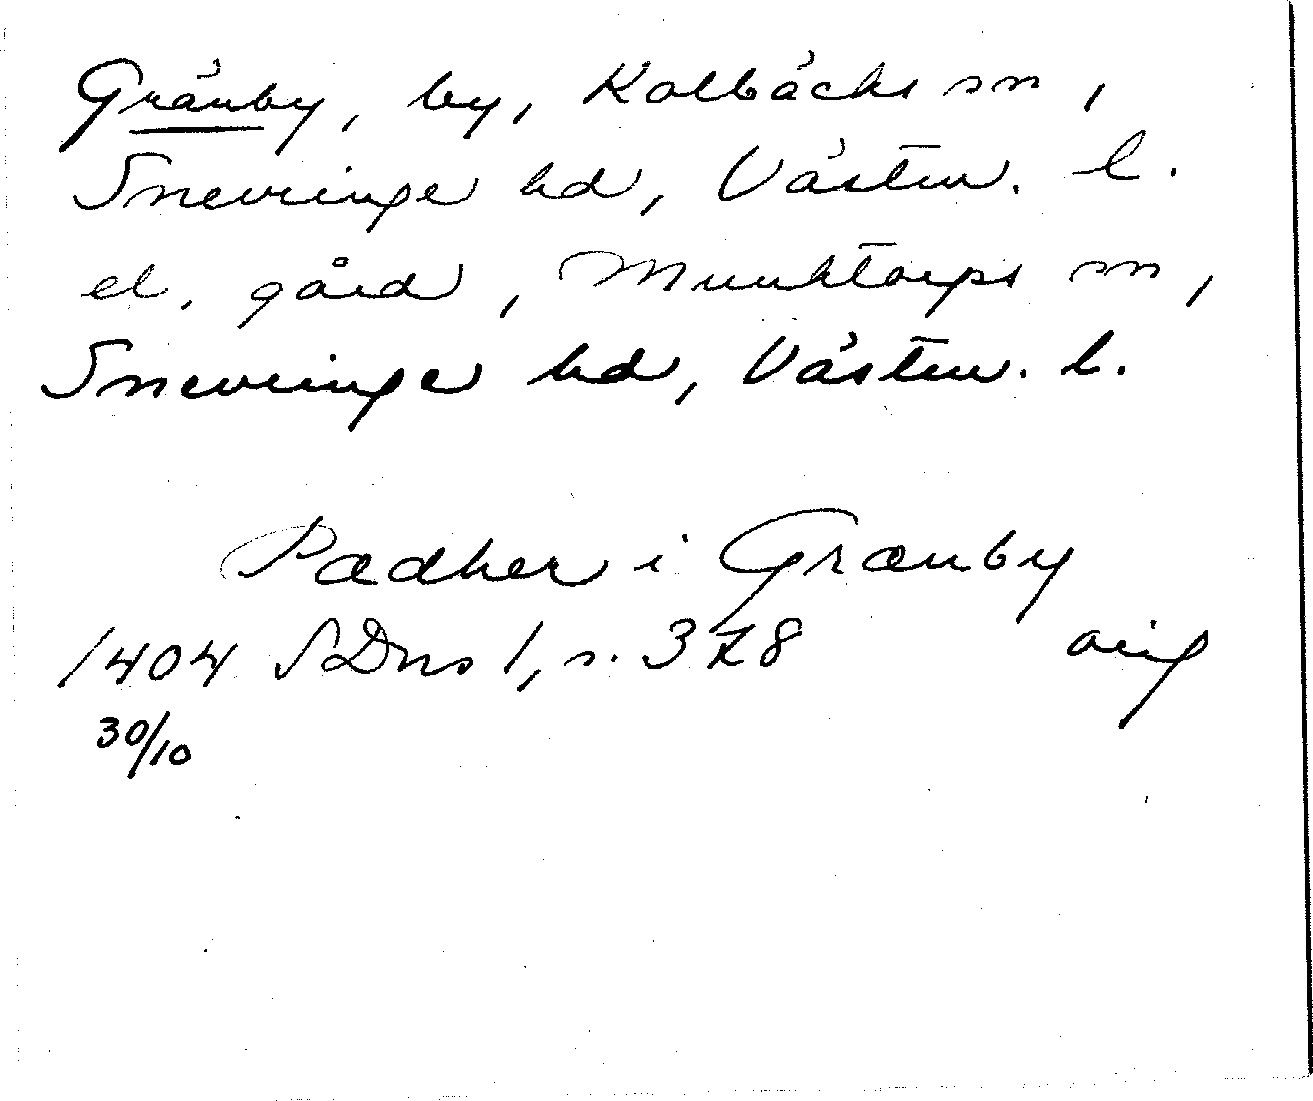 Gränby, by, Kolbäcks sn,
Snevringe hd, Västm. l.
el. gård, Munktorps sn,
Snevringe hd, Västm. l.
Pædher i Grænby
1404 SDns 1, s. 378 orig
30/10